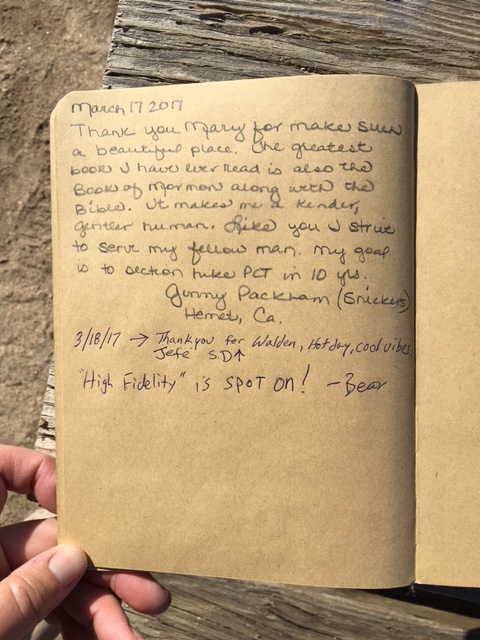 March 17 2017
Thank you Mary for make such
a beautiful place. The greatest
book I have ever read is also the
Book of Mormon along with the
Bible. It makes me a kinder,
gentler human. Like you I strive
to serve my fellow man. My goal
is to section hike PCT in 10 yrs.
Ginny Packham (Snickers)
Hemet, Ca.
3/18/17 → Thank you for Walden, Hot day, cool vibes
Jefe S.D↑
"High Fidelity" is SPOT ON! - Bear